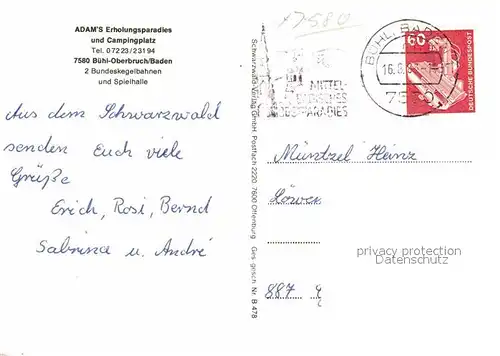 ADAM'S Erholungsparadies
und Campingplatz
Tel. 07223/23194
7580 Bühl-Oberbruch/Baden
2 Bundeskegelbahnen
und Spielhalle
Aus dem Schwarzwald
senden Euch viele
Grüße
Erich, Rosi, Bernd
Sabrina u. André
Schwarzwald-Verlag GmbH. Postfach 2220 7600 Offenburg Ges. gesch. Nr. B 478
x7580
MITTEL-
OBSTPARADIES
BÜHL, BADEN
16.8.
60
DEUTSCHE BUNDESPOST
Müntzel Heinz
887
privacy protection
Datenschutz